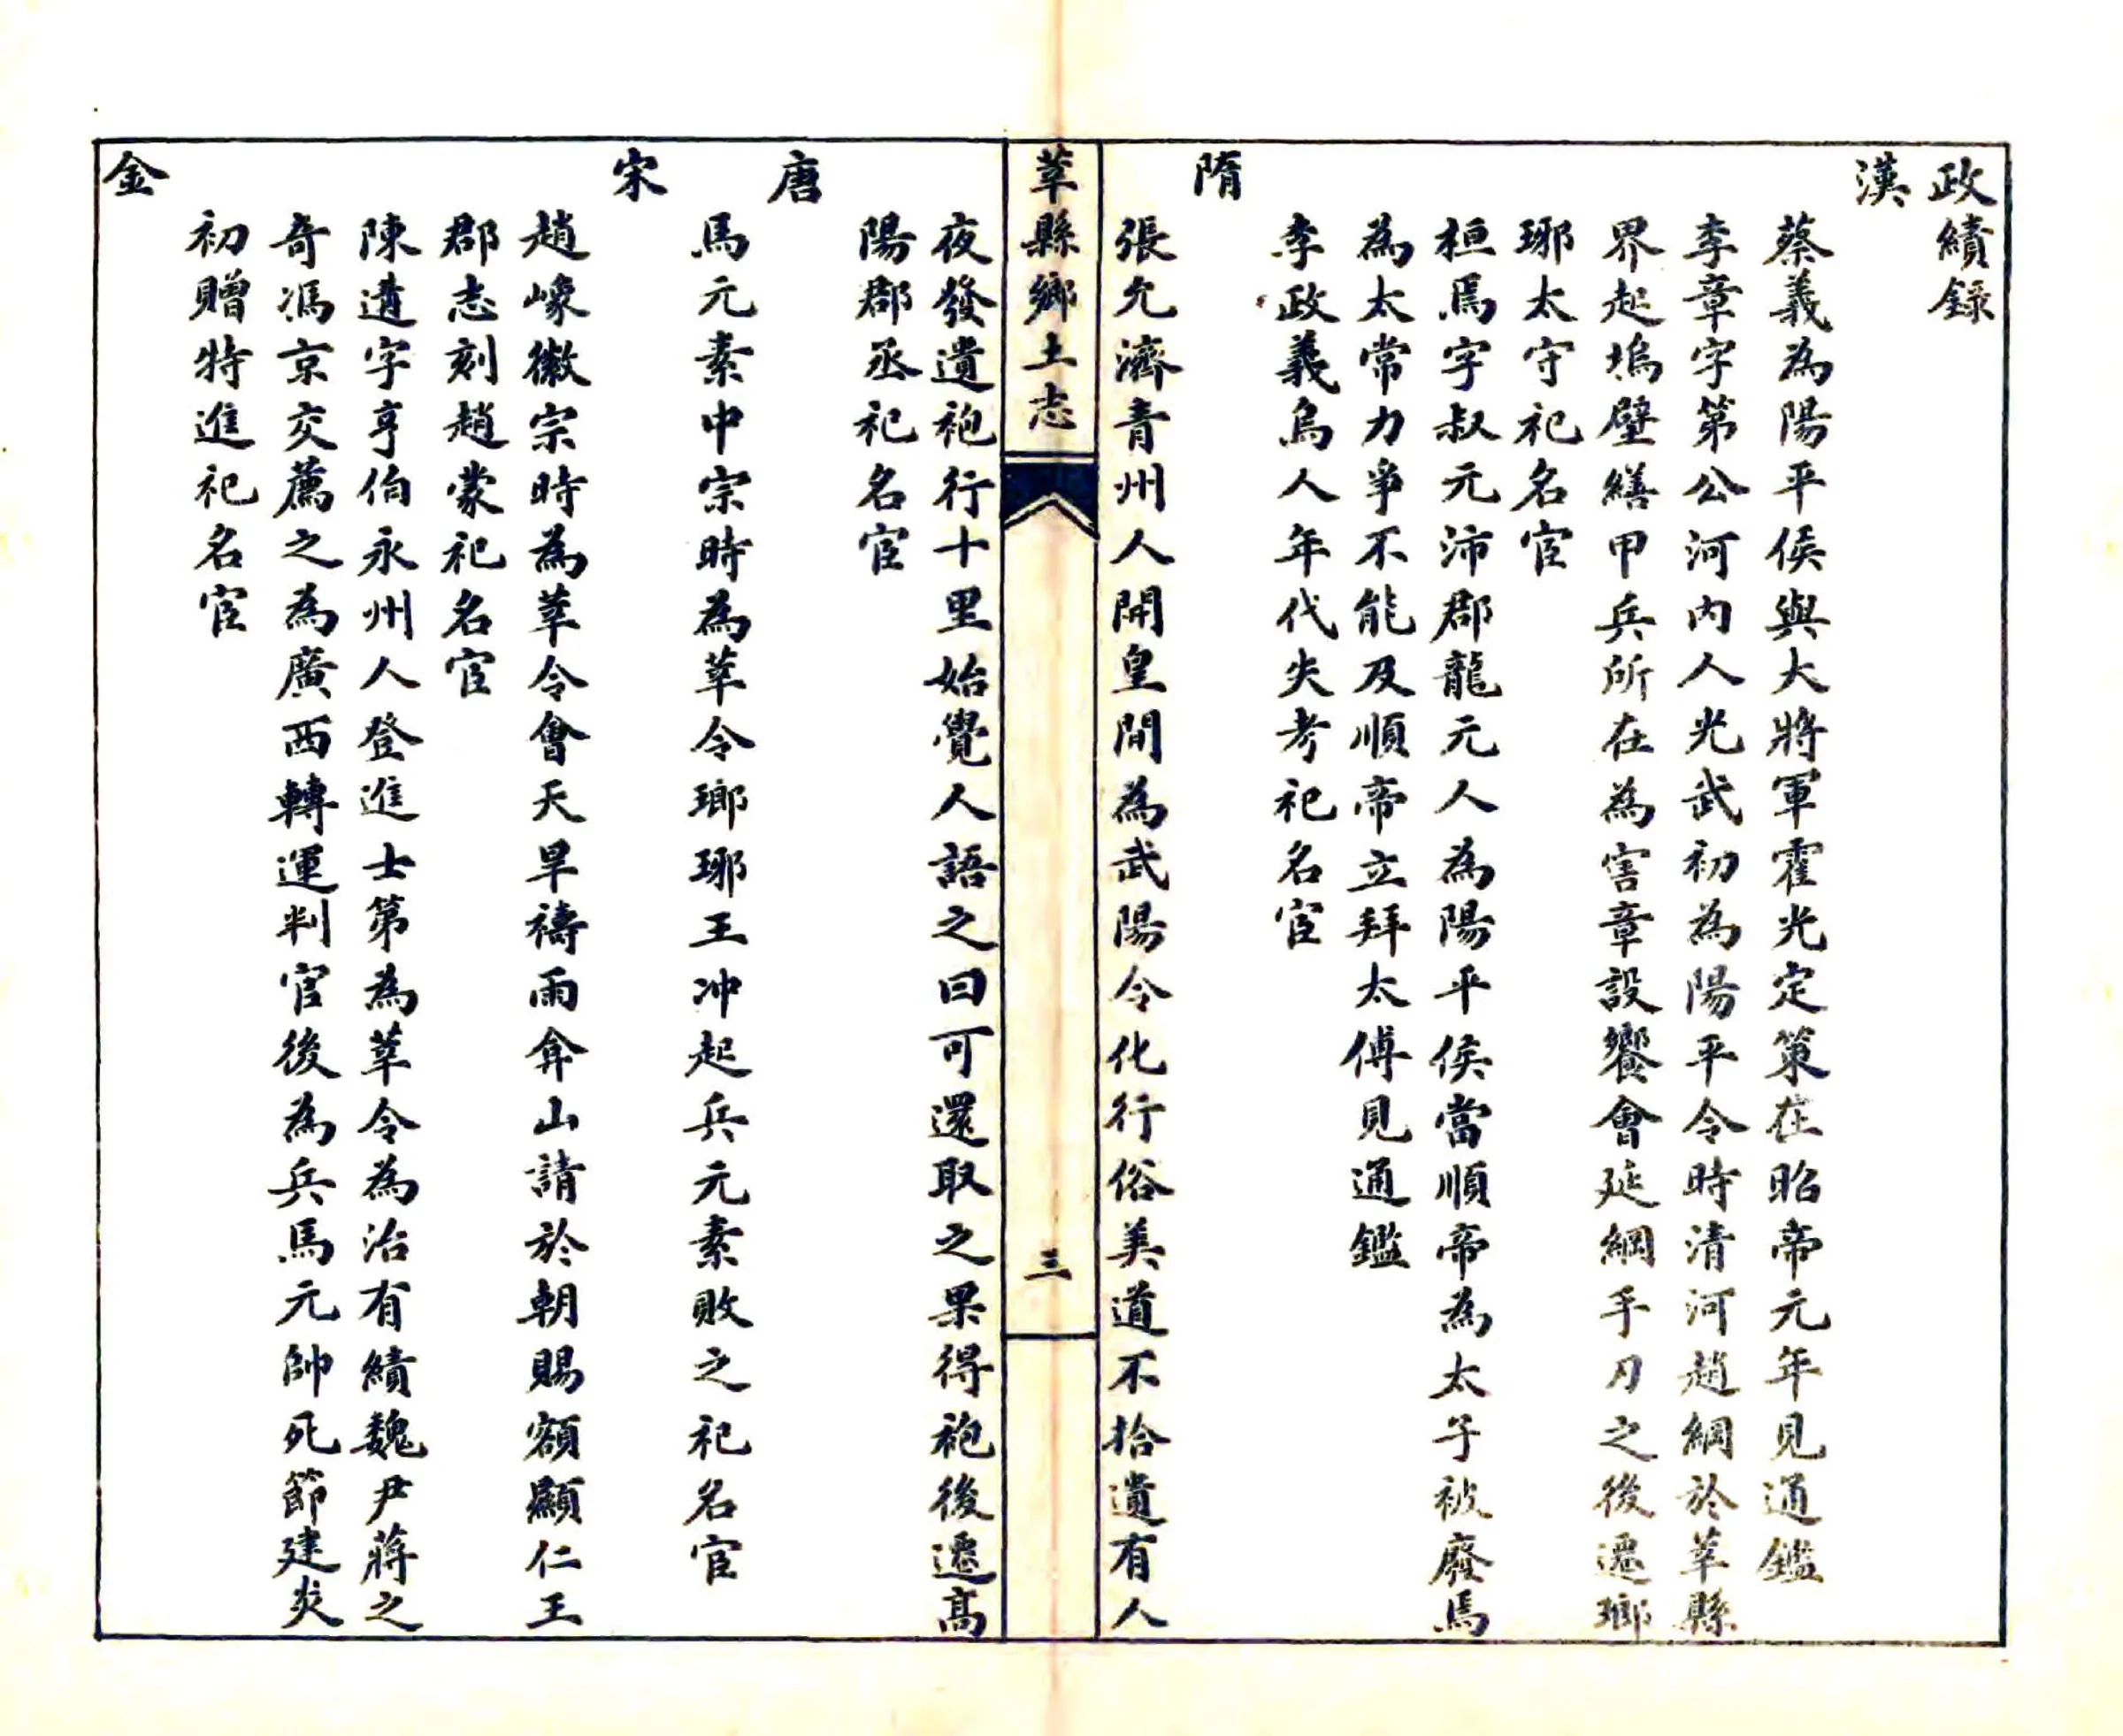 政績錄
漢
蔡義為陽平侯與大將軍霍光定策在昭帝元年見通鑑
李章字第公河內人光武初為陽平令時清河趙綱於莘縣
界起塢壁繕甲兵所在為害章設饗會延綱手刃之後遷瑯
琊太守祀名宦
桓焉字叔元沛郡龍元人為陽平侯當順帝為太子被廢焉
為太常力爭不能及順帝立拜太傅見通鑑
李政義烏人年代失考祀名宦
隋
張允濟青州人開皇間為武陽令化行俗美道不拾遺有人
莘縣鄉土志
三
夜發遺袍行十里始覺人語之曰可還取之果得袍後遷高
陽郡丞祀名宦
唐
馬元素中宗時為莘令瑯琊王冲起兵元素敗之祀名宦
宋
趙嵘徽宗時為莘令會天旱禱雨弇山請於朝賜額顯仁王
郡志刻趙蒙祀名宦
陳遘字亨伯永州人登進士第為莘令為治有績魏尹蔣之
奇馮京交薦之為廣西轉運判官後為兵馬元帥死節建炎
初贈特進祀名宦
金